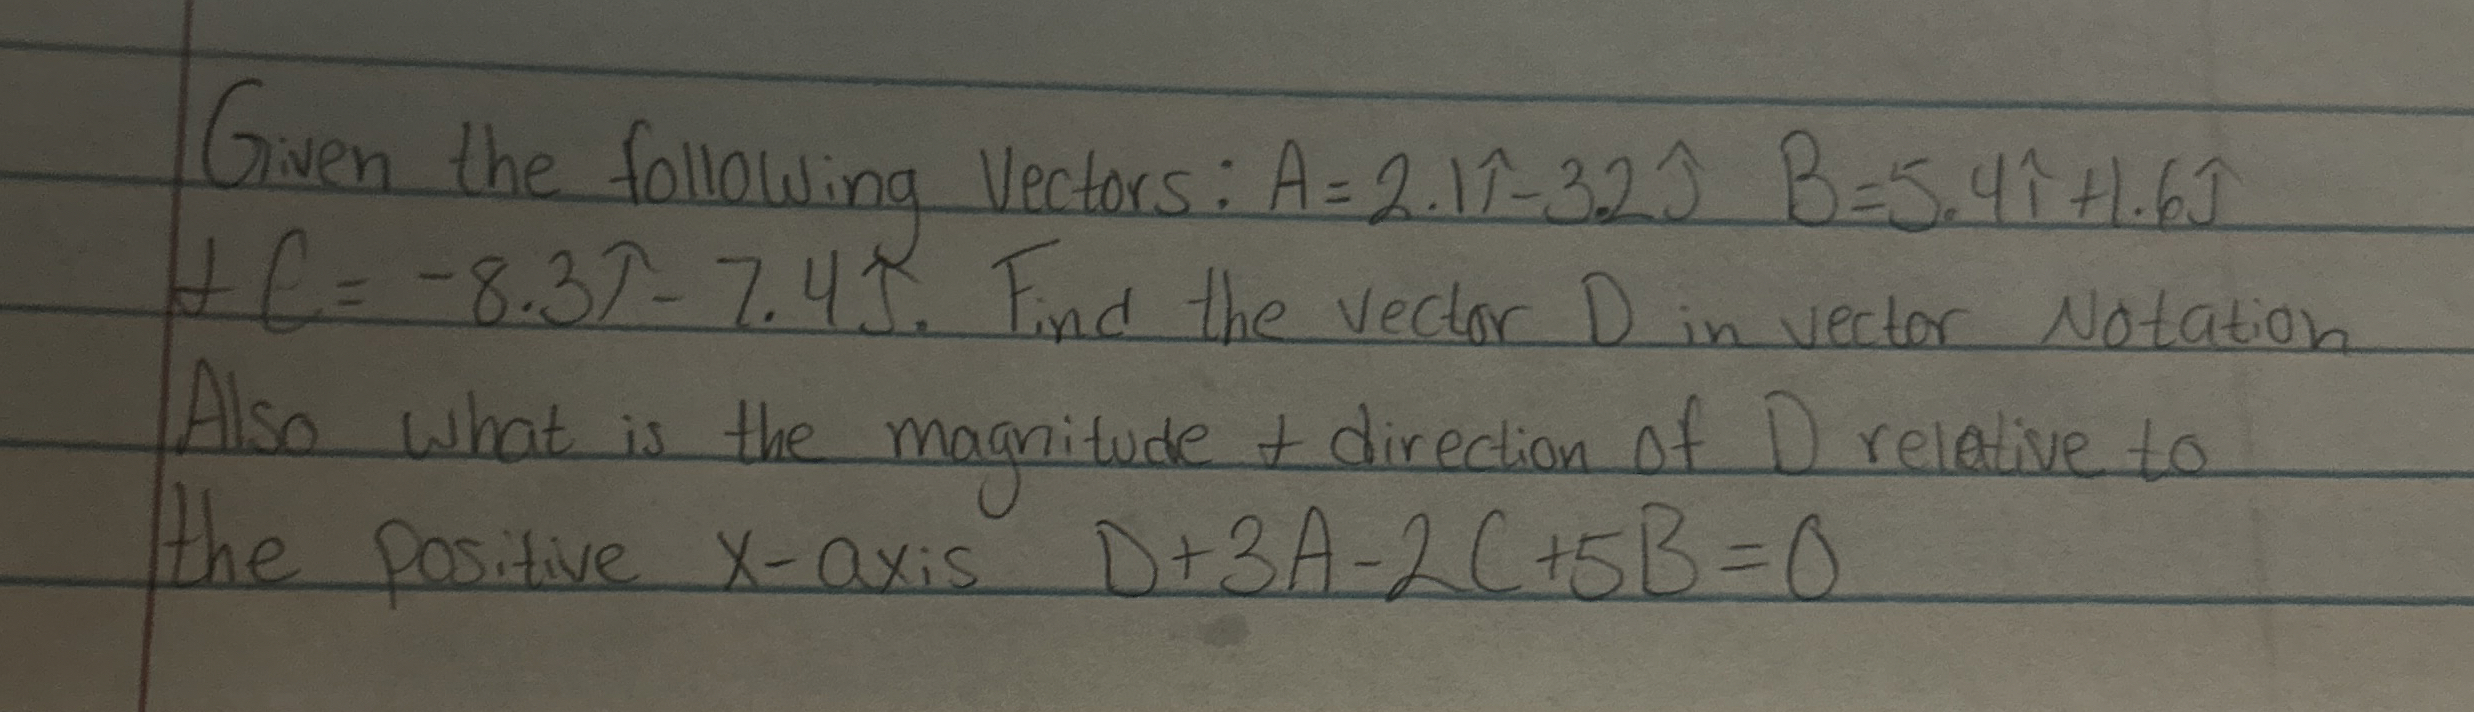 Given the following Vectors: A=2.1î-3.2ĵ B=5.4î+1.6ĵ
+ C= -8.3î-7.4ĵ. Find the vector D in vector Notation
Also what is the magnitude + direction of D relative to
the positive x-axis D+3A-2C+5B=0